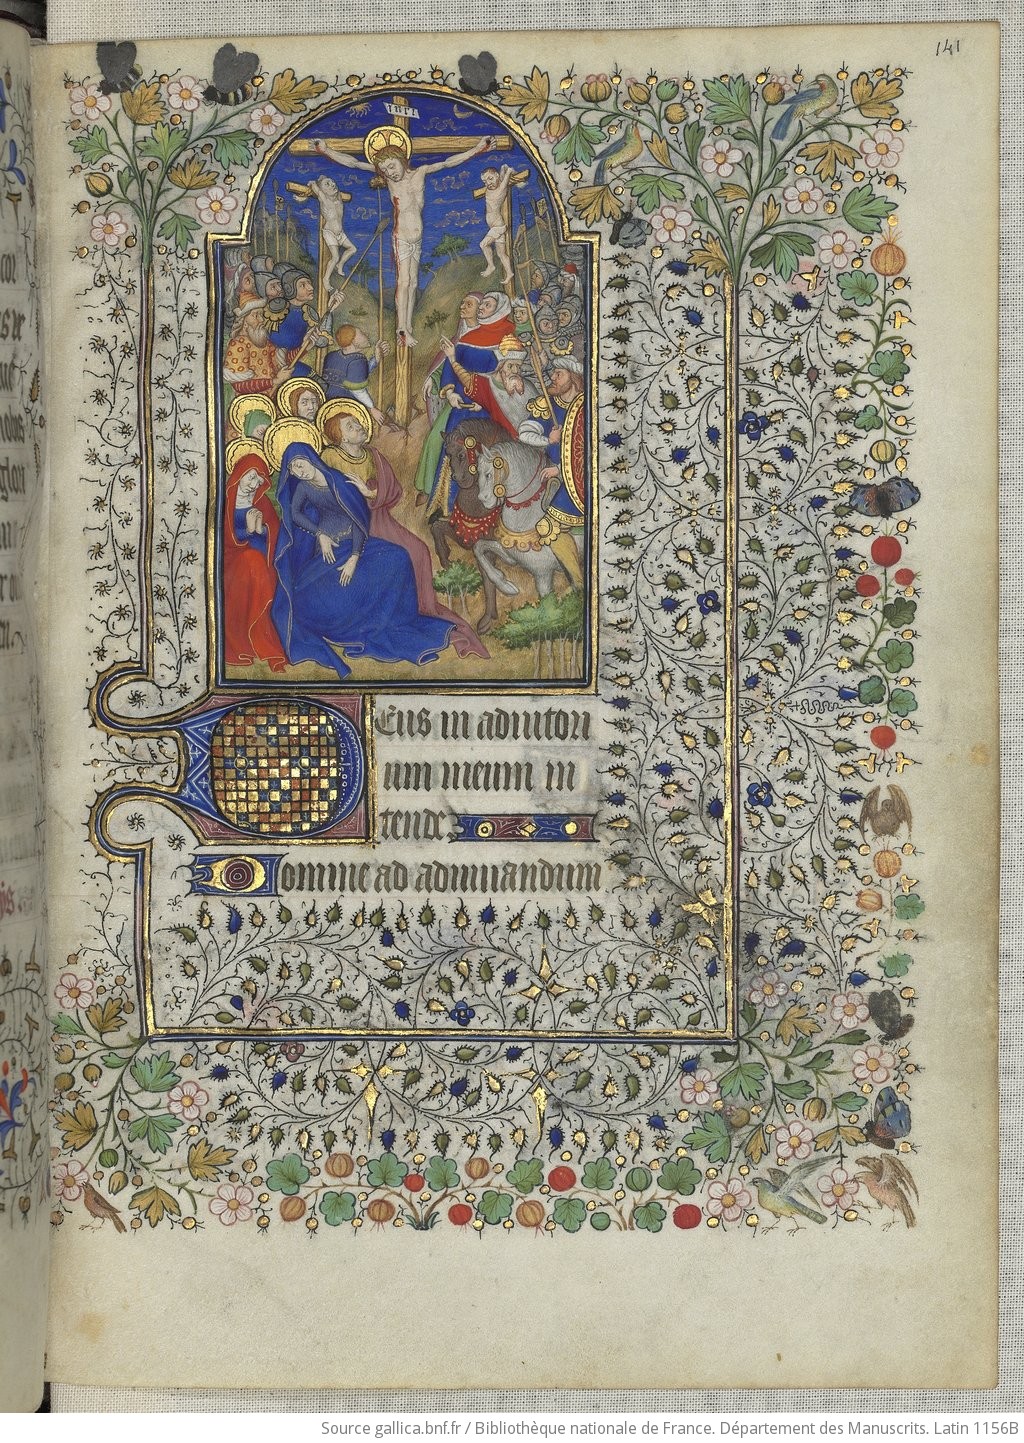 141
INRI
Eus in adiutori
um meum in
tende
omine ad adiuuandum
Source gallica.bnf.fr / Bibliothèque nationale de France. Département des Manuscrits. Latin 1156B